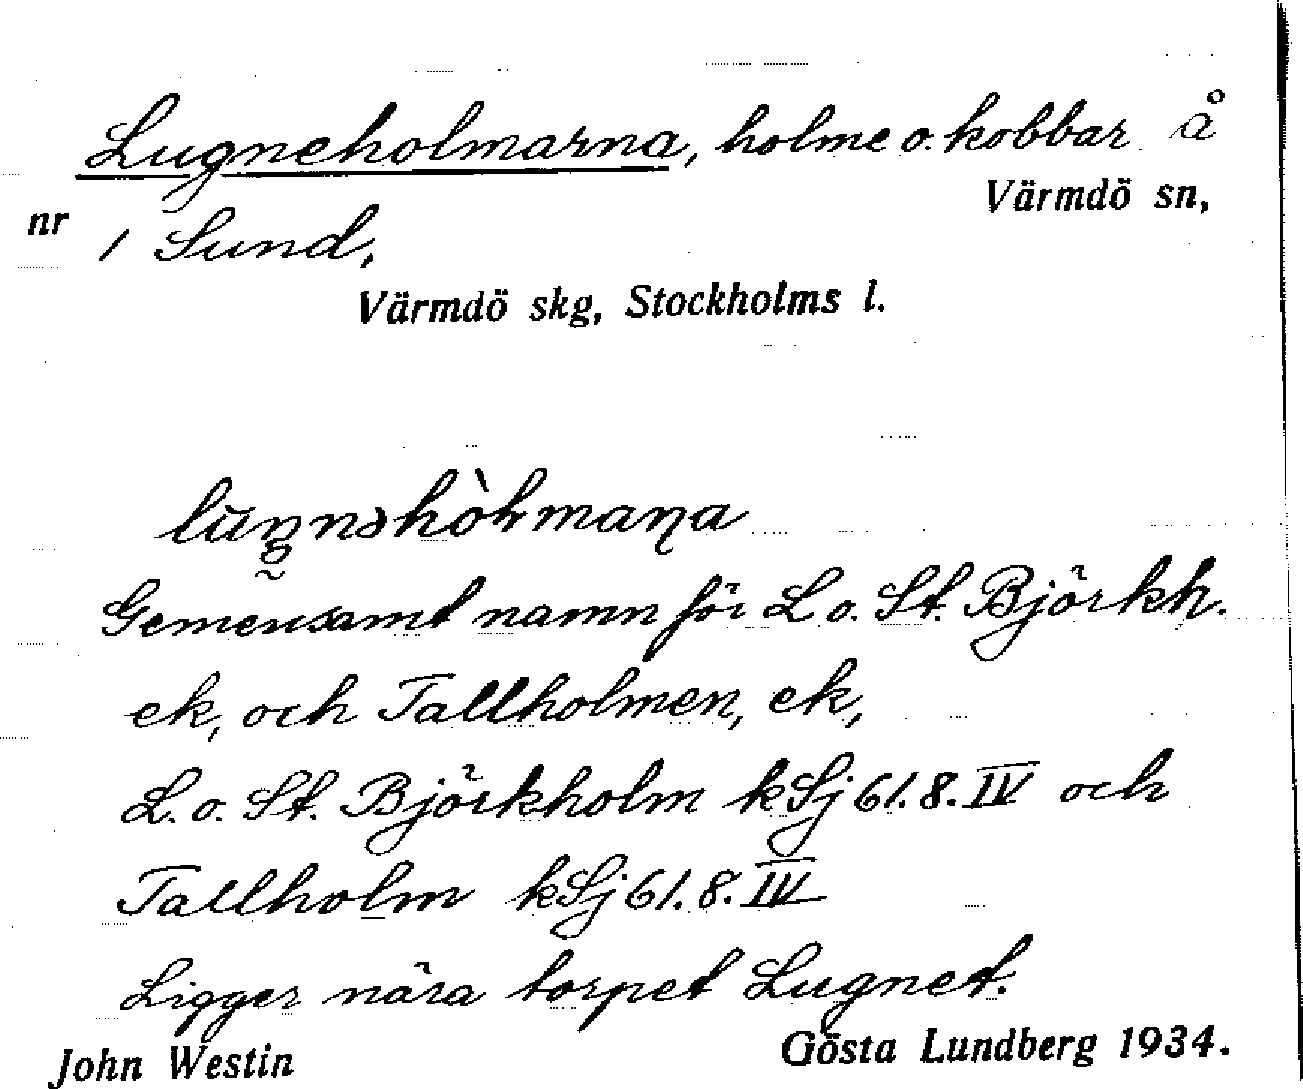 Lugneholmarna, holme o. kobbar å
Värmdö sn,
nr / Sund,
Värmdö skg, Stockholms l.
Gemensamt namn för L. o. St. Björkh.
ek, och Tallholmen, ek,
L. o. St. Björkholm kSj 61. 8. IV och
Tallholm kSj 61. 8. IV
Ligger nära torpet Lugnet.
John Westin Gösta Lundberg 1934.